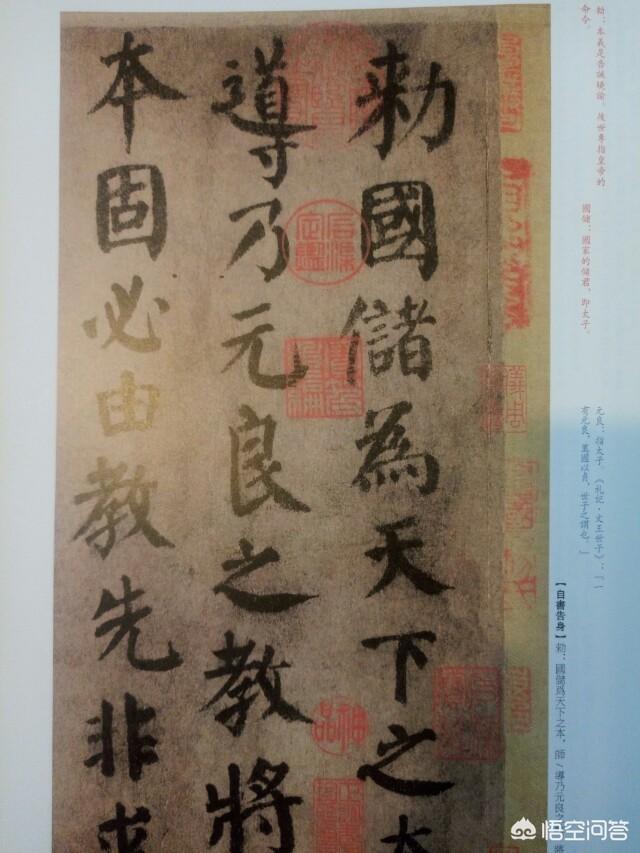 勅：本義是告誡曉諭，後世專指皇帝的
命令。
國儲：國家的儲君，即太子。
元良：指太子。《礼記·文王世子》：「一
有元良，萬國以貞，世子之謂也。」
【自書告身】勅：國儲爲天下之本，師/導乃元良之
勑國儲為天下之本
導乃元良之教將
本固必由教先非求
悟空问答